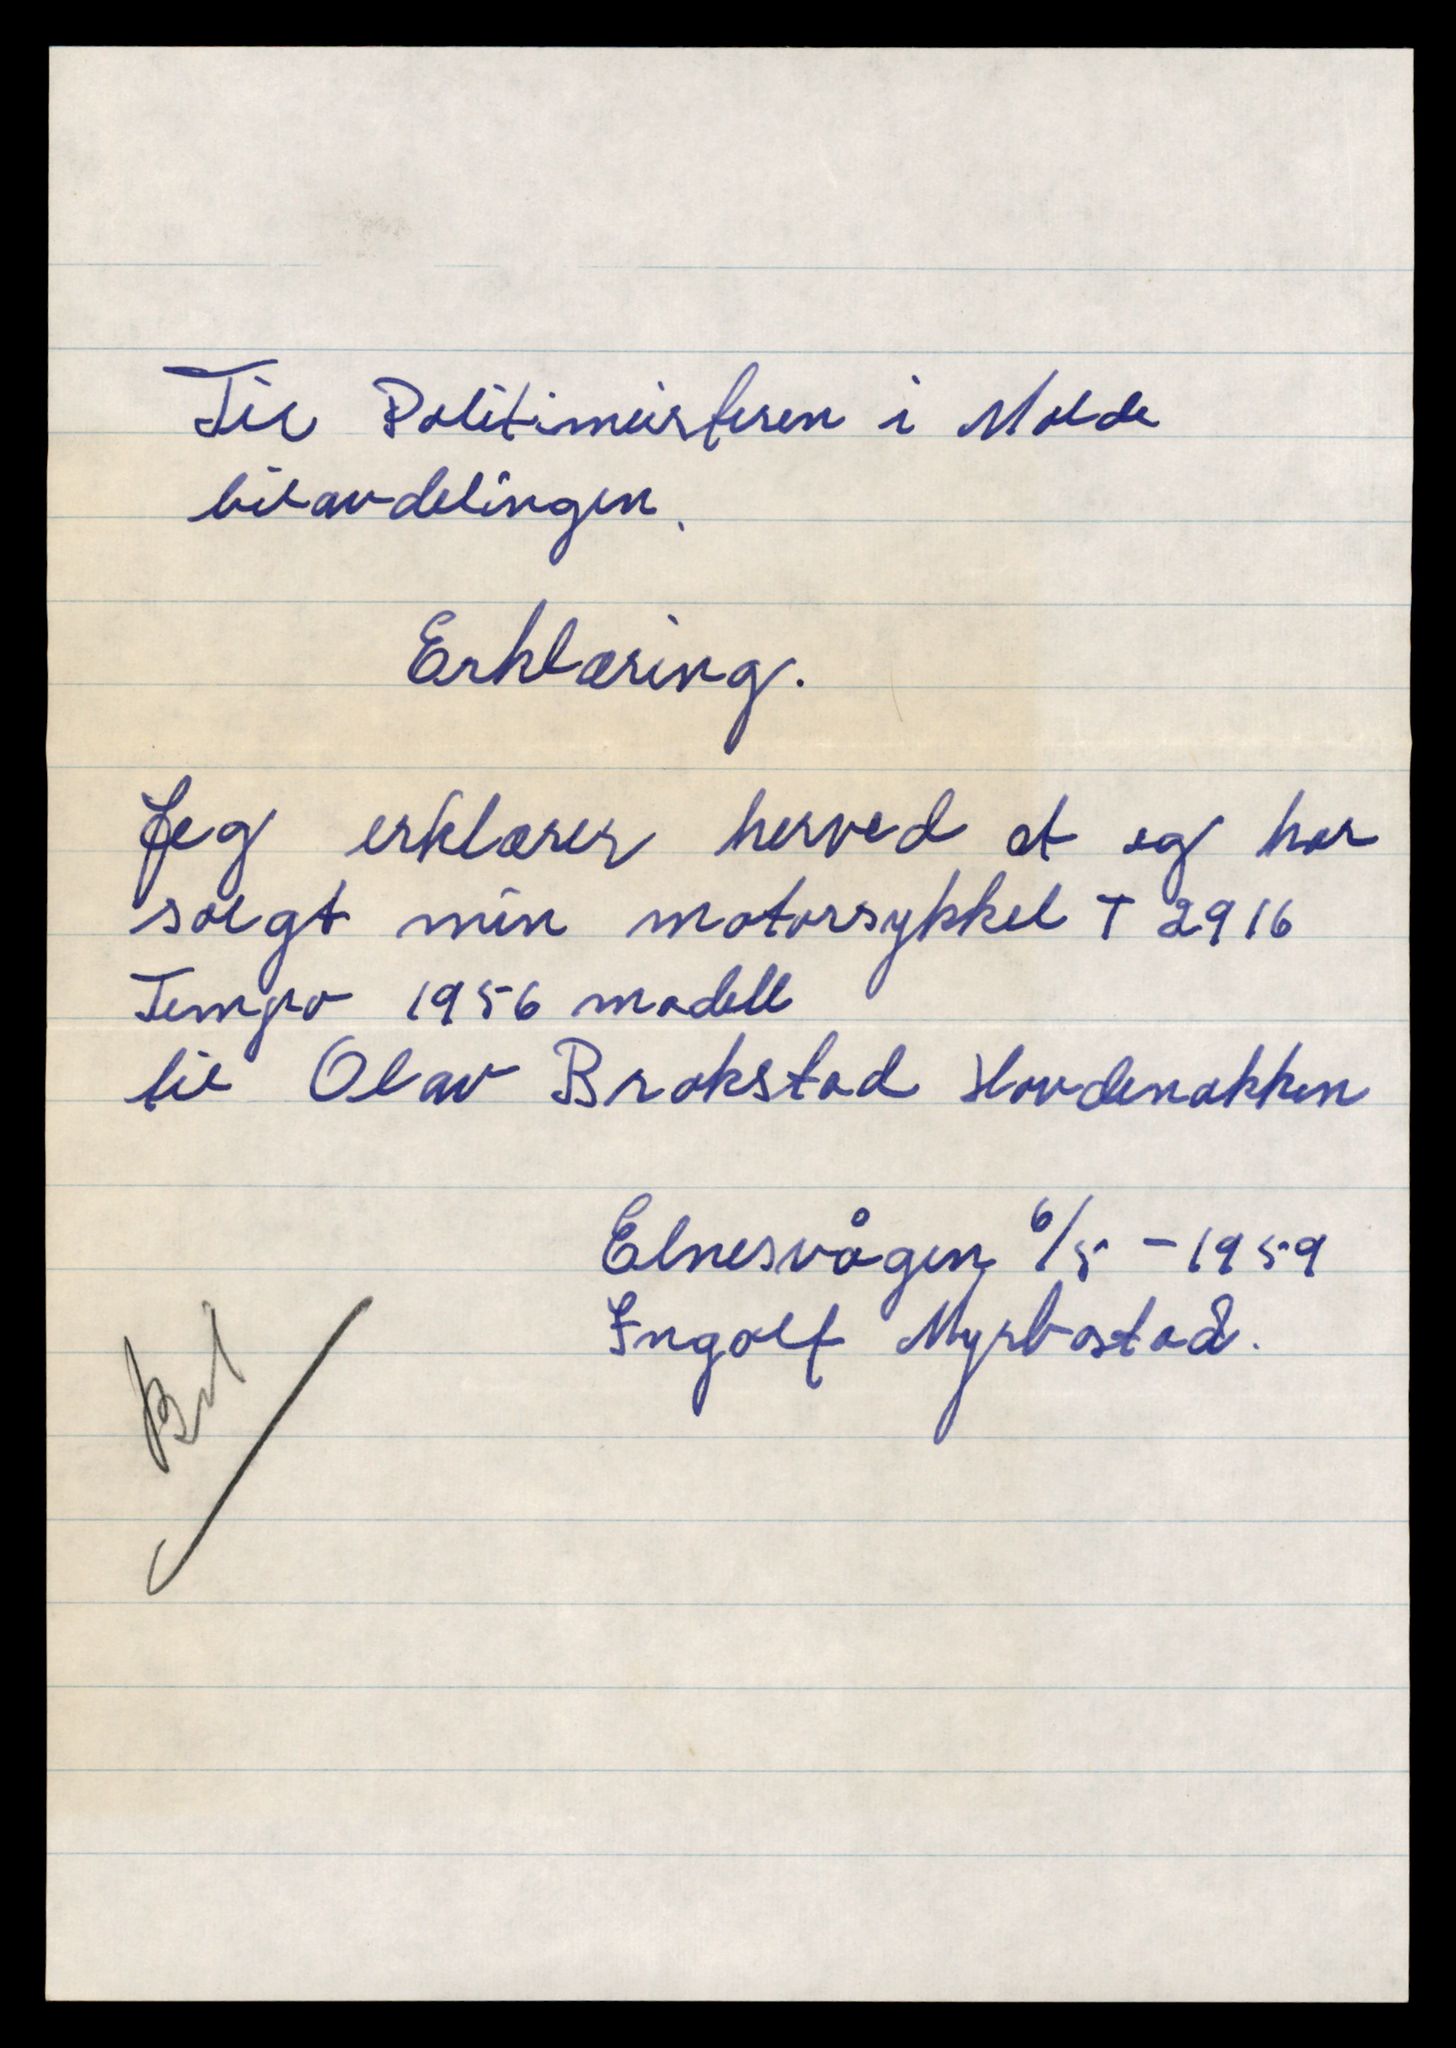 Til Politimeisteren i Molde
bilavdelingen.
Erklæring.
Jeg erklærer herved at eg har
solgt min motorsykkel T 2916
Tempo 1956 modell
til Olav Brokstad Hovdenakken
Elnesvågen 6/5 - 1959
Ingolf Myrbostad.